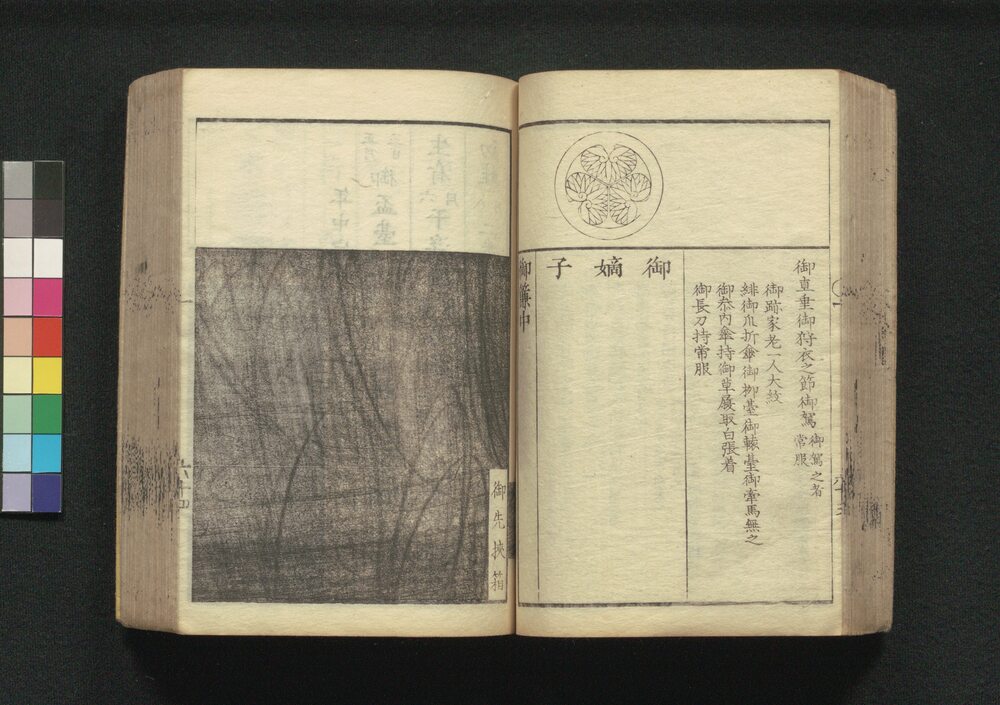 御直垂御狩衣之節御駕 御駕之者
常服
御跡家老一人大紋
緋御爪折傘御挾臺御轅臺御牽馬無之
御参内傘持御草履取白張着
御長刀持常服
御嫡子
御簾中
御先挾箱
六十四